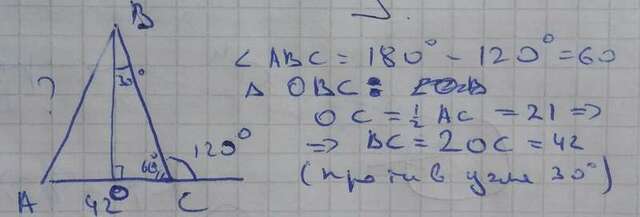 B
30°
?
120°
60°
A 42 O C
∠ ABC = 180° - 120° = 60
Δ OBC:
OC = ½ AC = 21 =>
=> BC = 2OC = 42
(против угла 30°)